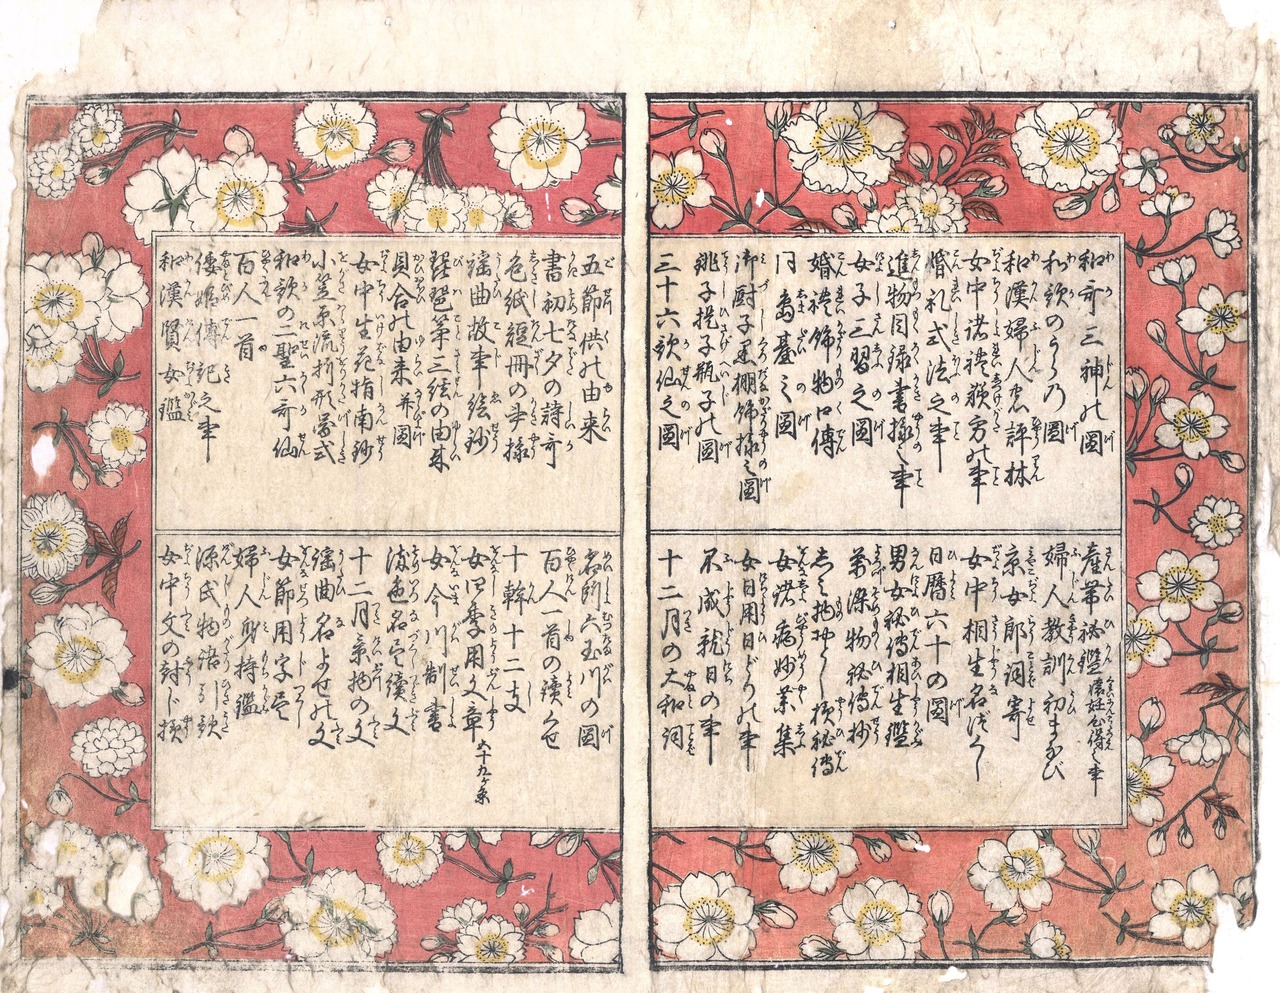 和哥三神の圖
和歌のうらの圖
和漢婦人忠評林
女中諸禮躾方の事
婚礼式法之事
進物目録書様之事
女子三習之圖
婚禮飾物口傳
同嶋臺之圖
御厨子黒棚飾様之圖
銚子提子瓶子の圖
三十六歌仙之圖
産帯秘鑑 懐妊心得之事
婦人教訓初まなび
京女郎詞寄
女中相生名つくし
日暦六十の圖
男女秘傳相生鑑
萬染物秘傳抄
しみ物おとし様秘傳
女諸病妙薬集
女日用日どりの事
不成就日の事
十二月の大和詞
五節供の由来
書初七夕の詩哥
色紙短冊の書様
謡曲故事絵抄
琵琶箏三絃の由来
貝合の由来并圖
女中生花指南抄
小笠原流折形圖式
和歌の二聖六哥仙
百人一首
倭姫傳記之事
和漢賢女鑑
名所六玉川の圖
百人一首の續くせ
十幹十二支
女四季用文章 五十九ヶ条
女今川制書
染色名尽續文
十二月景物の文
謡曲名よせの文
女節用字尽
婦人身持鑑
源氏物語引歌
女中文の封じ様